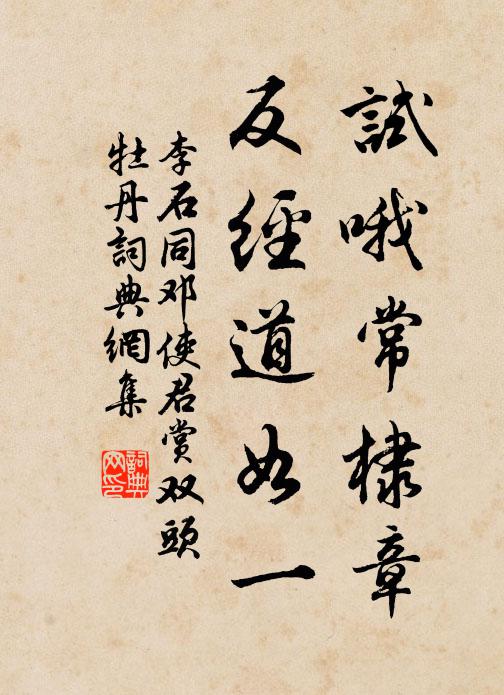 試哦常棣章
反經道如一
李石同邓使君赏双頭
牡丹詞典網集
詞典网印